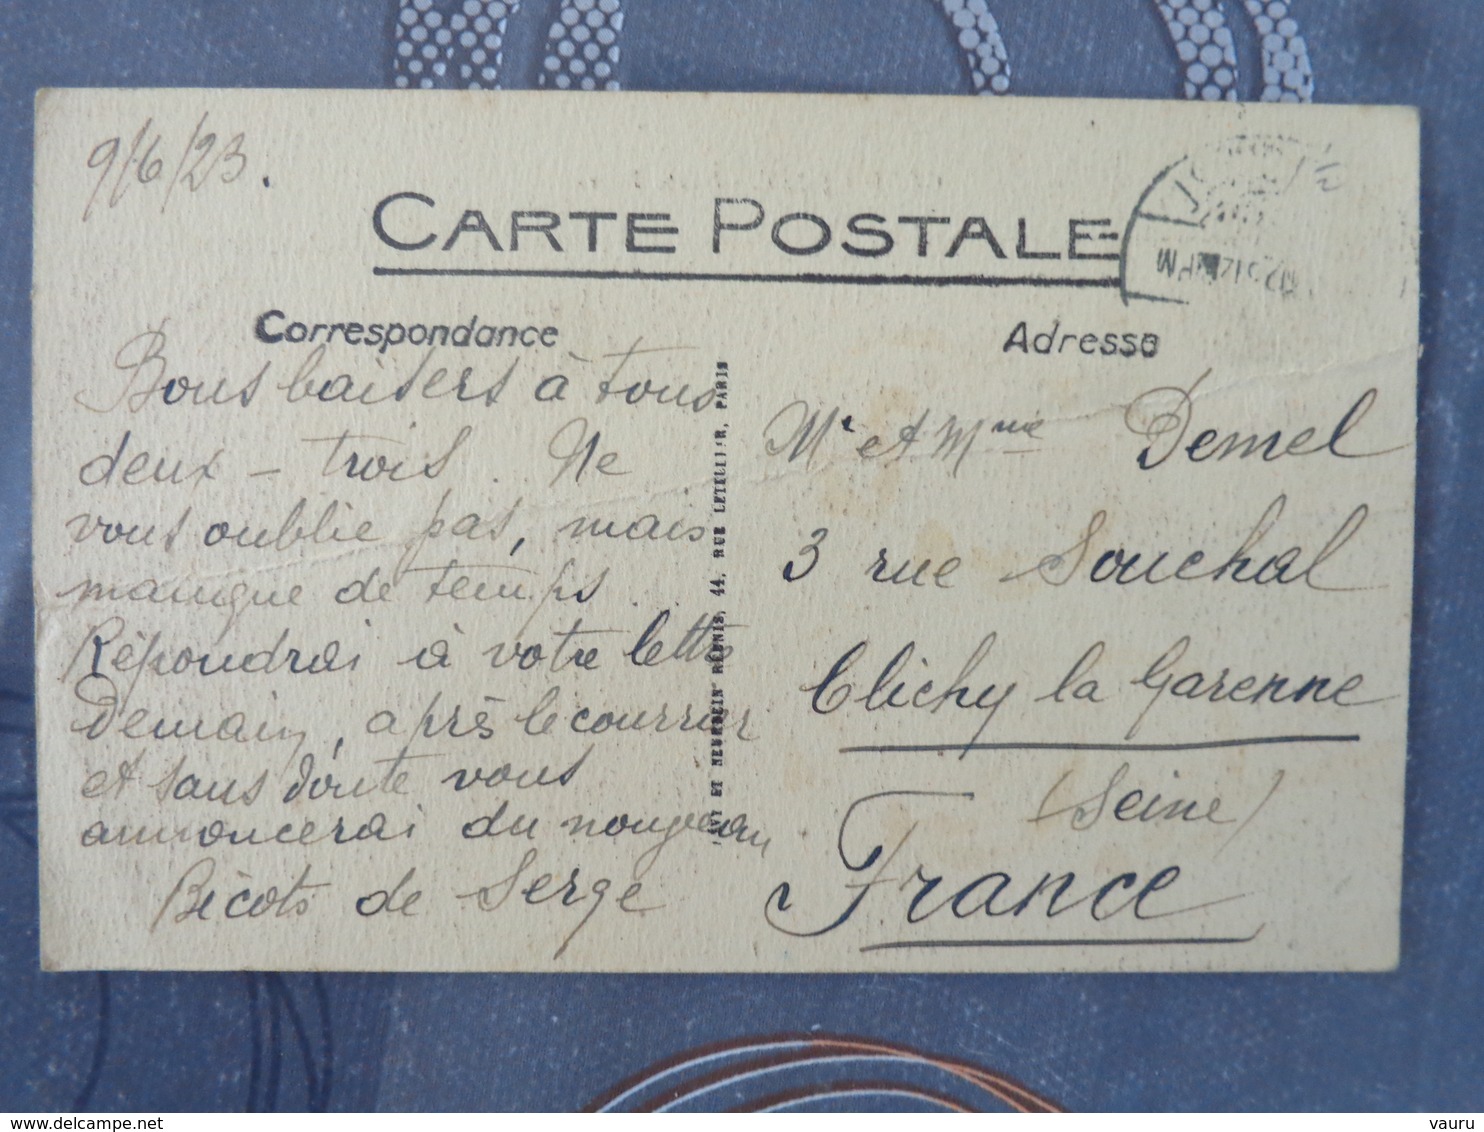 9/6/23.
CARTE POSTALE
PM
Correspondance
Adresse
Bons baisers à tous
deux – trois. Ne
vous oublie pas, mais
manque de temps.
Répondrai à votre lettre
Demain, après le courrier
et sans doute vous
annoncerai du nouveau
Bécots de Serge
ET NEURDEIN RÉUNIS, 44, RUE LETELLIER, PARIS
Mr et Mme Demel
3 rue Souchal
Clichy la Garenne
(Seine)
France
vauru